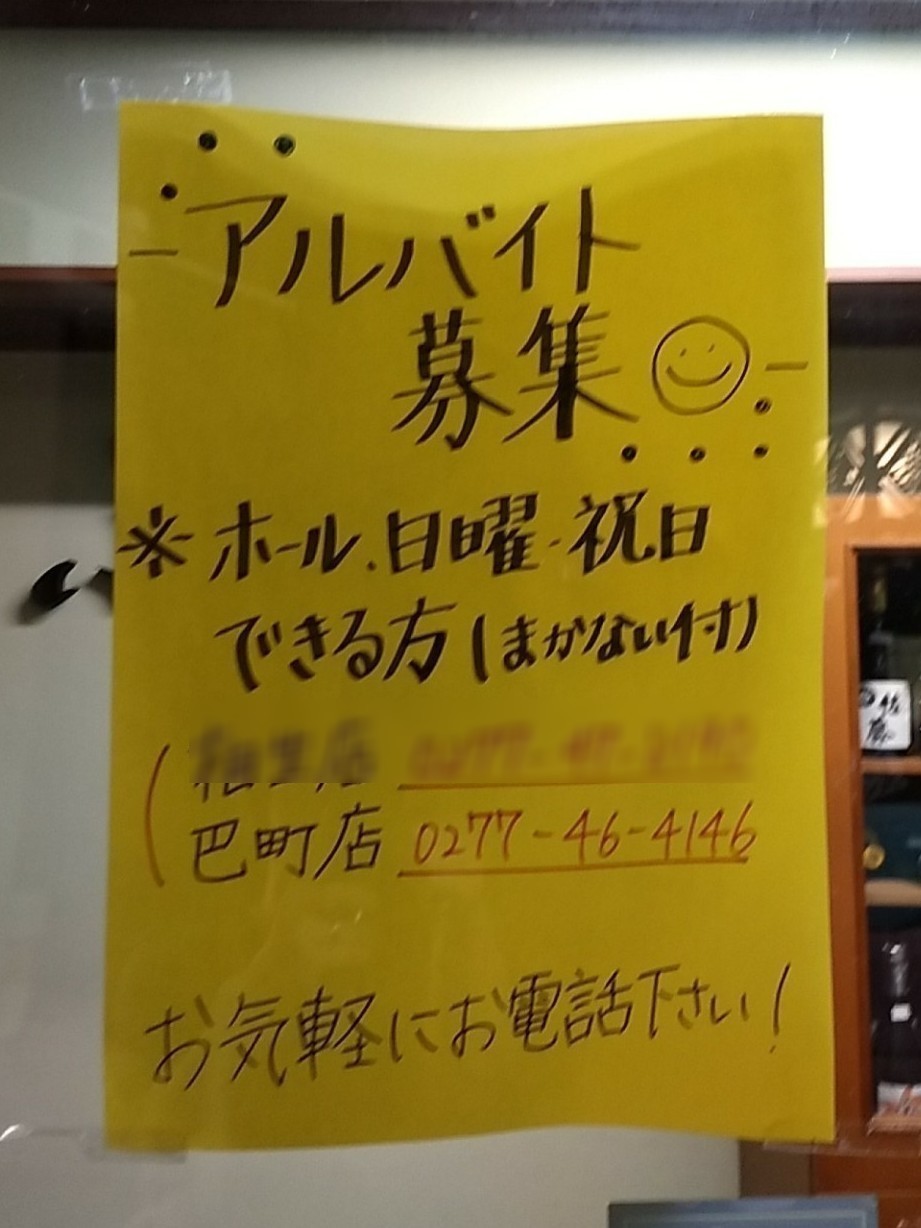 アルバイト
募集
※ホール、日曜・祝日
できる方(まかない付)
巴町店 0277-46-4146
お気軽にお電話下さい!
佐藤